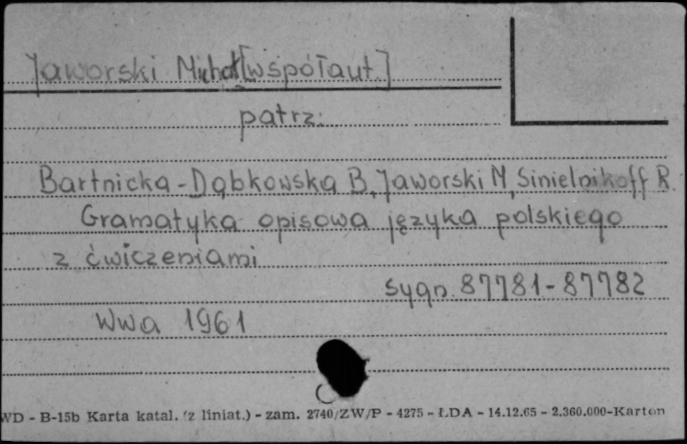 Jaworski Michał [współaut.]
patrz:
Bartnicka-Dąbkowska B., Jaworski M., Sinielnikoff R.
Gramatyka opisowa języka polskiego
z ćwiczeniami
sygn. 87781-87782
Wwa 1961
WD - B-15b Karta katal. (z liniat.) - zam. 2740/ZW/P - 4275 - ŁDA - 14.12.65 - 2.360.000-Karton